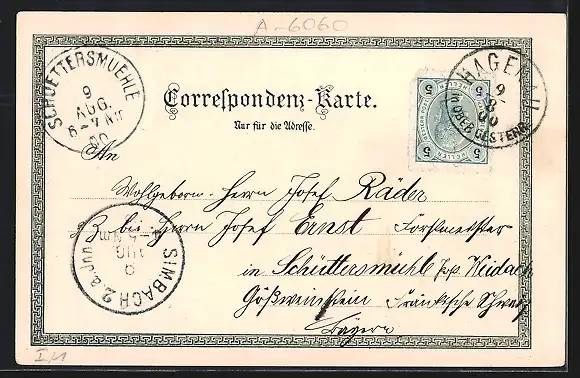 A-6060
SCHUETTERSMUEHLE
9
AUG.
6-7 Nm
00
Correspondenz-Karte.
Nur für die Adresse.
HAGENAU
9
8
00
OBER OESTERR.
5 5
5 5
An
Wohlgeborn Herrn Josef Räder
bei Herrn Josef Ernst Forstmeister
in Schüttersmühle Weidach
Gößweinstein Fränkische Schweiz
Bayern
SIMBACH
9
AUG